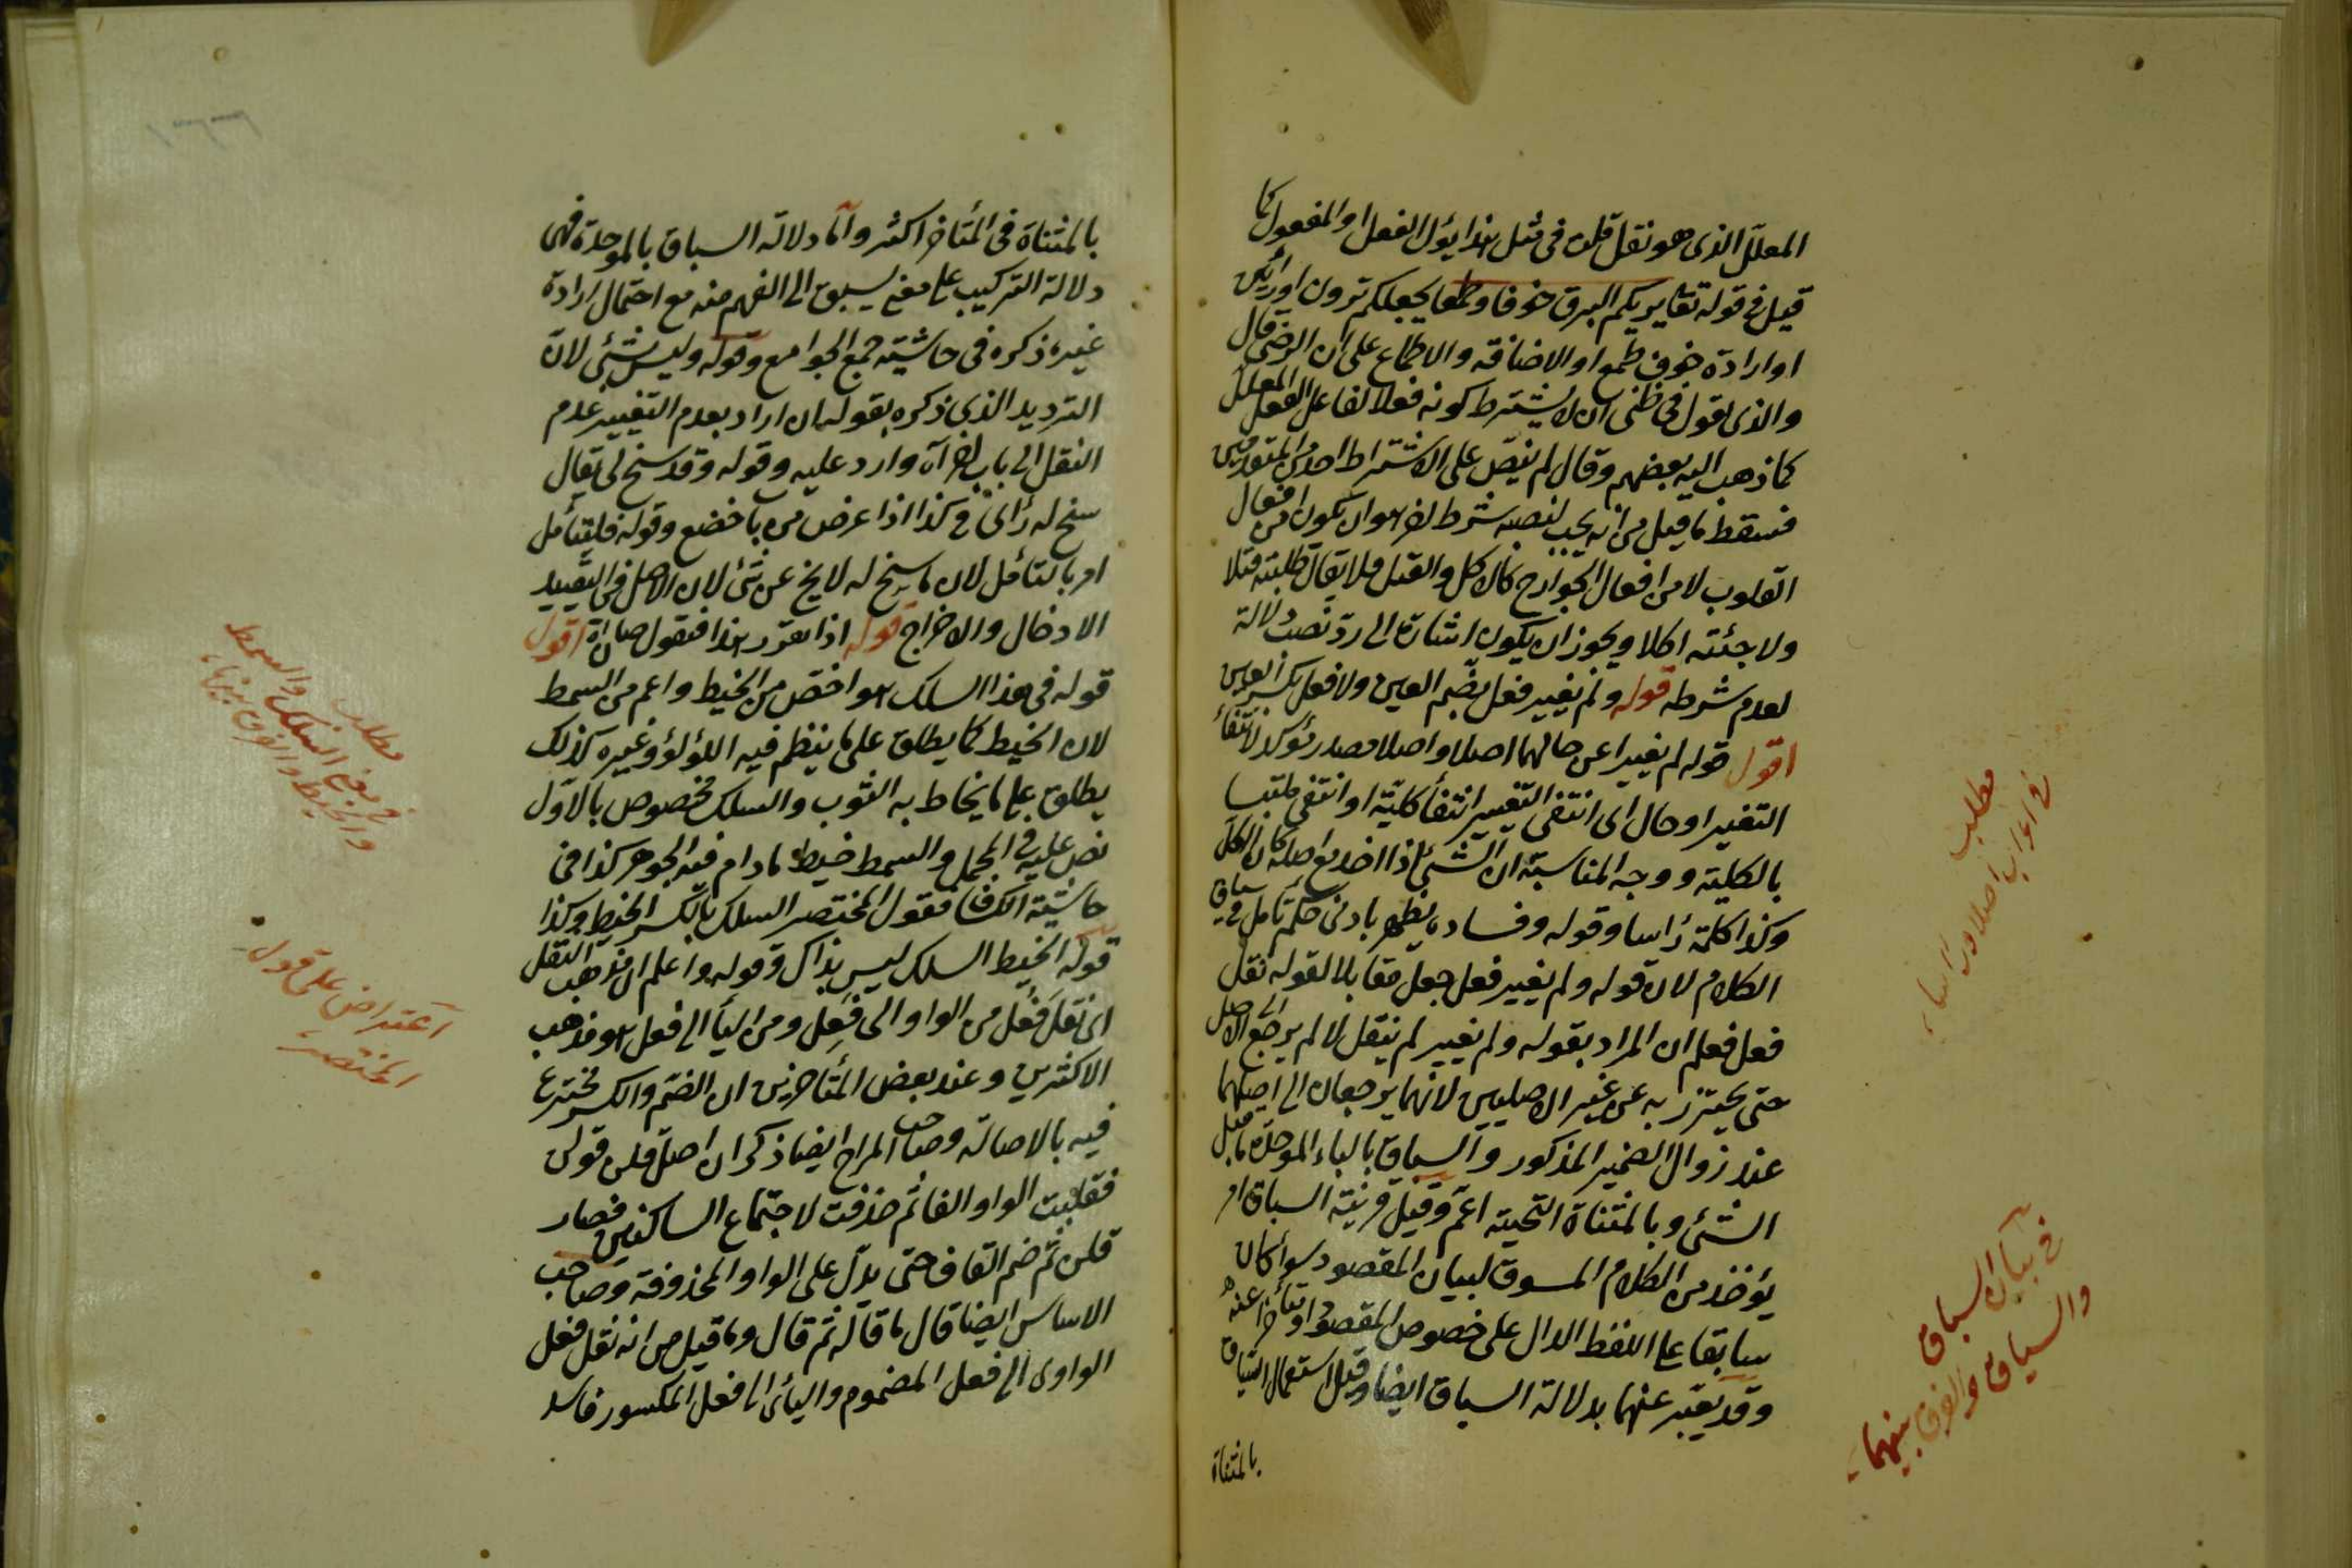 المعلل الذى هو نقل قلن فى مثل هذا يؤل الفعل او المفعول كما
قيل فى قوله تعا يريكم البرق خوفا وطمعا يجعلكم ترون او رائين
او ارادة خوف طمع او الاضافة والاطماع على ان الرضى قال
والذى اقول فى ظنى ان لا يشترط كونه فعلا لفاعل الفعل المعلل
كما ذهب اليه بعضهم وقال لم ينص على الاشتراط احد من المتقدمين
فسقط ما قيل من انه يجب لنصبه شرط اخر هو ان يكون من افعال
القلوب لا من افعال الجوارح كالاكل والقتل فلا يقال طلبته قتلا
ولا جئته اكلا ويجوز ان يكون اشارة الى رد نصب دلالة
لعدم شرطه قوله ولم يغير فعل بضم العين ولا فعل بكسر العين
اقول قوله لم يغيرا عن حالهما اصلا واصلا مصدر مؤكد لانتفاء
التغير او حال اى انتفى التغيير انتفاء كلية او انتفى ملتبسا
بالكلية ووجه المناسبة ان الشئ اذا اخذ مع اصله كان الكل
وكذا كلمة رأسا وقوله وفساده يظهر بادنى تأمل فى سياق
الكلام لان قوله ولم يغير فعل جعل مقابلا لقوله نقل
فعل فعلم ان المراد بقوله ولم يغير لم ينقل لا لم يرجع الى الاصل
حتى يحترز به عن غير الاصليين لانهما يرجعان الى اصلهما
عند زوال الضمير المذكور والسباق بالباء الموحدة ما قبل
الشئ وبالمثناة التحتية اعم وقيل قرينة السباق امر
يؤخذ من الكلام المسوق لبيان المقصود سواء كان
سابقا على اللفظ الدال على خصوص المقصود او متأخرا عنه
وقد يعبر عنهما بدلالة السياق ايضا وقيل استعمال السياق
بالمثناة
مطلب
فى اعراب اصلا ورأسا
فى بيان السباق
والسياق والفرق بينهما
بالمثناة فى المتأخر اكثر واما دلالة السباق بالموحدة فهى
دلالة التركيب على معنى يسبق الى الفهم منه مع احتمال ارادة
غيره ذكره فى حاشية جمع الجوامع وقوله وليس بشئ لان
الترديد الذى ذكره بقوله ان اراد بعدم التغيير عدم
النقل الى باب اخر آه وارد عليه وقوله وقد سنح لى يقال
سنح له رأى فى كذا اذا عرض من باب خضع وقوله فليتأمل
امر بالتأمل لان ما سنح له لا يخ عن شئ لان الاصل فى التقييد
الادخال والاخراج قوله اذا تقرر هذا فنقول صان آه اقول
قوله فى هذا السلك هو اخص من الخيط واعم من السمط
لان الخيط كما يطلق على ما ينظم فيه اللؤلؤ وغيره كذلك
يطلق على ما يخاط به الثوب والسلك مخصوص بالاول
نص عليه فى المجمل والسمط خيط ما دام فيه الجوهر كذا فى
حاشية الكشاف فقول المختصر السلك بالكسر الخيط وكذا
قوله الخيط السلك ليس بذاك وقوله واعلم ان مذهب النقل
اى نقل فعل من الواو الى فعل ومن الياء الى فعل هو مذهب
الاكثرين وعند بعض المتأخرين ان الضم والكسر مخترع
فيه بالاصالة وصاحب المراح ايضا ذكر ان اصل قلن قولن
فقلبت الواو الفا ثم حذفت لاجتماع الساكنين فصار
قلن ثم ضم القاف حتى يدل على الواو المحذوفة وصاحب
الاساس ايضا قال ما قاله ثم قال وما قيل من انه نقل فعل
الواوى الى فعل المضموم واليائى الى فعل المكسور فاسد
مطلب
فى معنى السلك والسمط
والخيط والفرق بينها
اعتراض على قول
المختصر